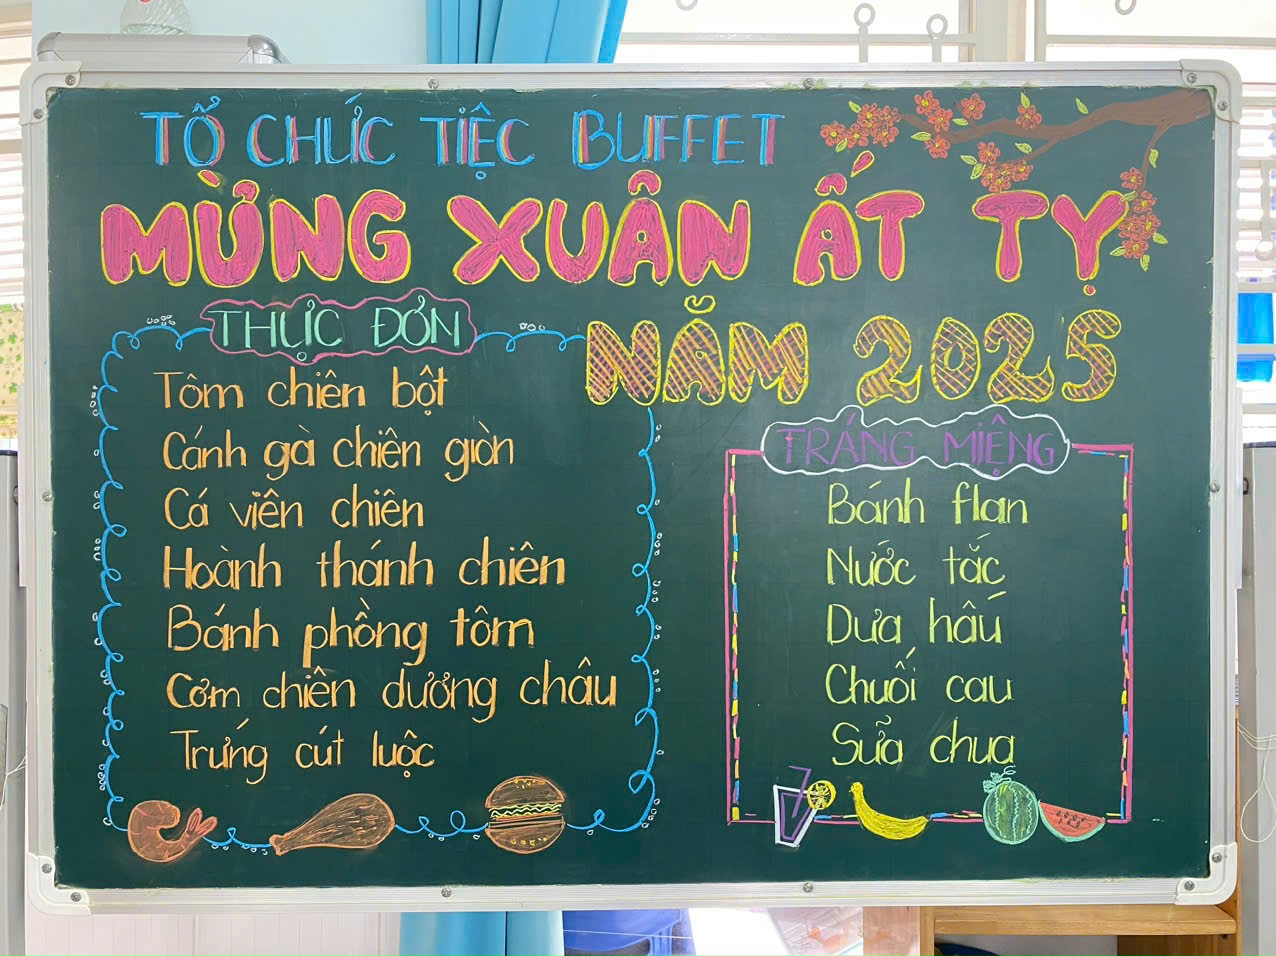 TỔ CHỨC TIỆC BUFFET
MỪNG XUÂN ẤT TỴ
NĂM 2025
THỰC ĐƠN
Tôm chiên bột
Cánh gà chiên giòn
Cá viên chiên
Hoành thánh chiên
Bánh phồng tôm
Cơm chiên dương châu
Trứng cút luộc
TRÁNG MIỆNG
Bánh flan
Nước tắc
Dưa hấu
Chuối cau
Sữa chua